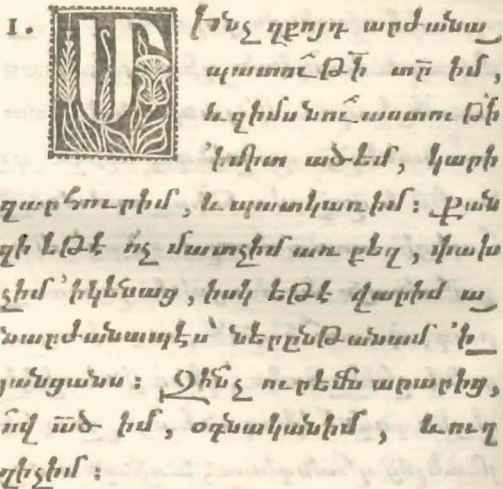 1. Մինչ զքոյդ արժանա
պատուութի տր իմ
և զիմս նուաստութի
'ի միտ ածեմ, կարի
զարհուրիմ, և պատկառիմ: Քան
զի եթէ ոչ մատչիմ առ քեզ, փախ
չիմ 'ի կենաց, իսկ եթէ վարիմ ա
նարժանապէս՝ ներընթանամ 'ի
յանցանս: Զի՞նչ ուրեմն արարից,
ո՛վ ած իմ, օգնական իմ, և ուղ
ղիչ իմ: